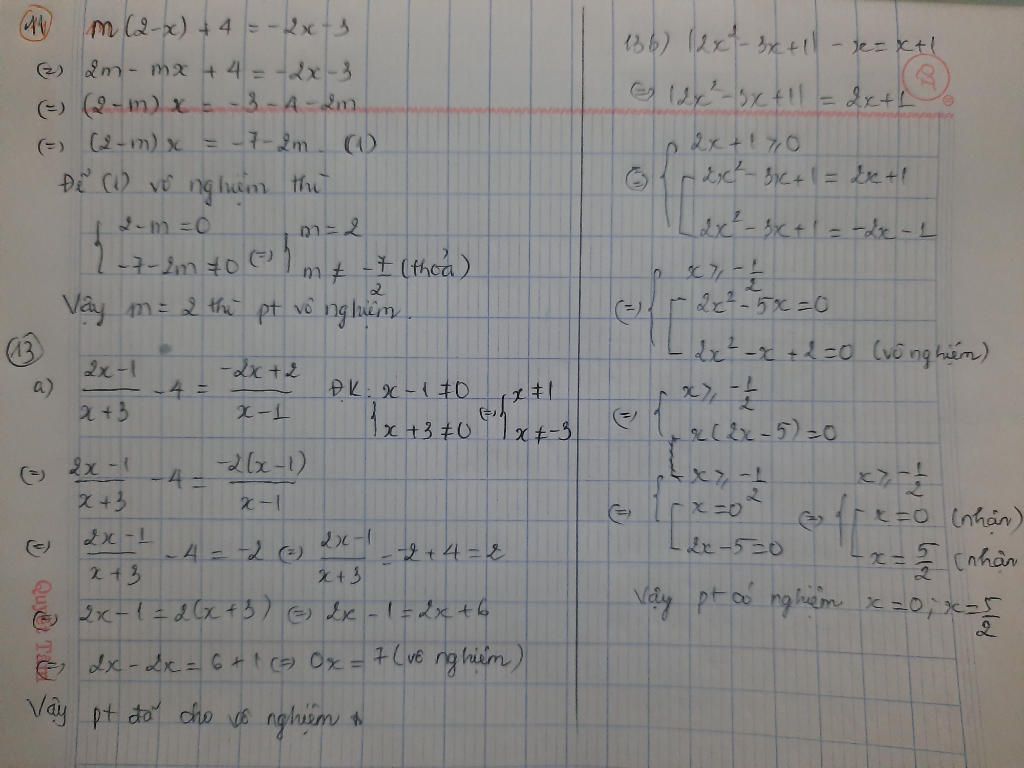 11 m(2-x) + 4 = -2x-3
(=) 2m - mx + 4 = -2x-3
(=) (2-m)x = -3-4-2m
(=) (2-m)x = -7-2m. (1)
Để (1) vô nghiệm thì
{ 2-m=0
-7-2m ≠0 (=) { m=2
m ≠ -7/2 (thoả)
Vậy m=2 thì pt vô nghiệm.
13
a) (2x-1)/(x+3) - 4 = (-2x+2)/(x-1) ĐK: { x-1≠0
x+3≠0 (=) { x≠1
x≠-3
(=) (2x-1)/(x+3) - 4 = -2(x-1)/(x-1)
(=) (2x-1)/(x+3) - 4 = -2 (=) (2x-1)/(x+3) = -2+4=2
(=) 2x-1=2(x+3) (=) 2x-1=2x+6
(=) 2x-2x=6+1 (=) 0x=7 (vô nghiệm)
Vậy pt đã cho vô nghiệm
13b) |2x²-3x+1| - x = x+1
(=) |2x²-3x+1| = 2x+1
(=) { 2x+1 ≥ 0
[ 2x²-3x+1=2x+1
2x²-3x+1=-2x-1
(=) { x ≥ -1/2
[ 2x²-5x=0
2x²-x+2=0 (vô nghiệm)
(=) { x ≥ -1/2
x(2x-5)=0
(=) { x ≥ -1/2
[ x=0
2x-5=0
(=) { x ≥ -1/2
[ x=0 (nhận)
x=5/2 (nhận
Vậy pt có nghiệm x=0; x=5/2